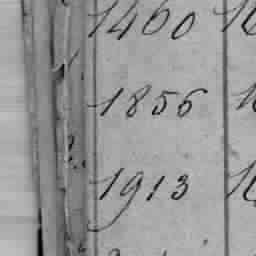 1460
1856
1913